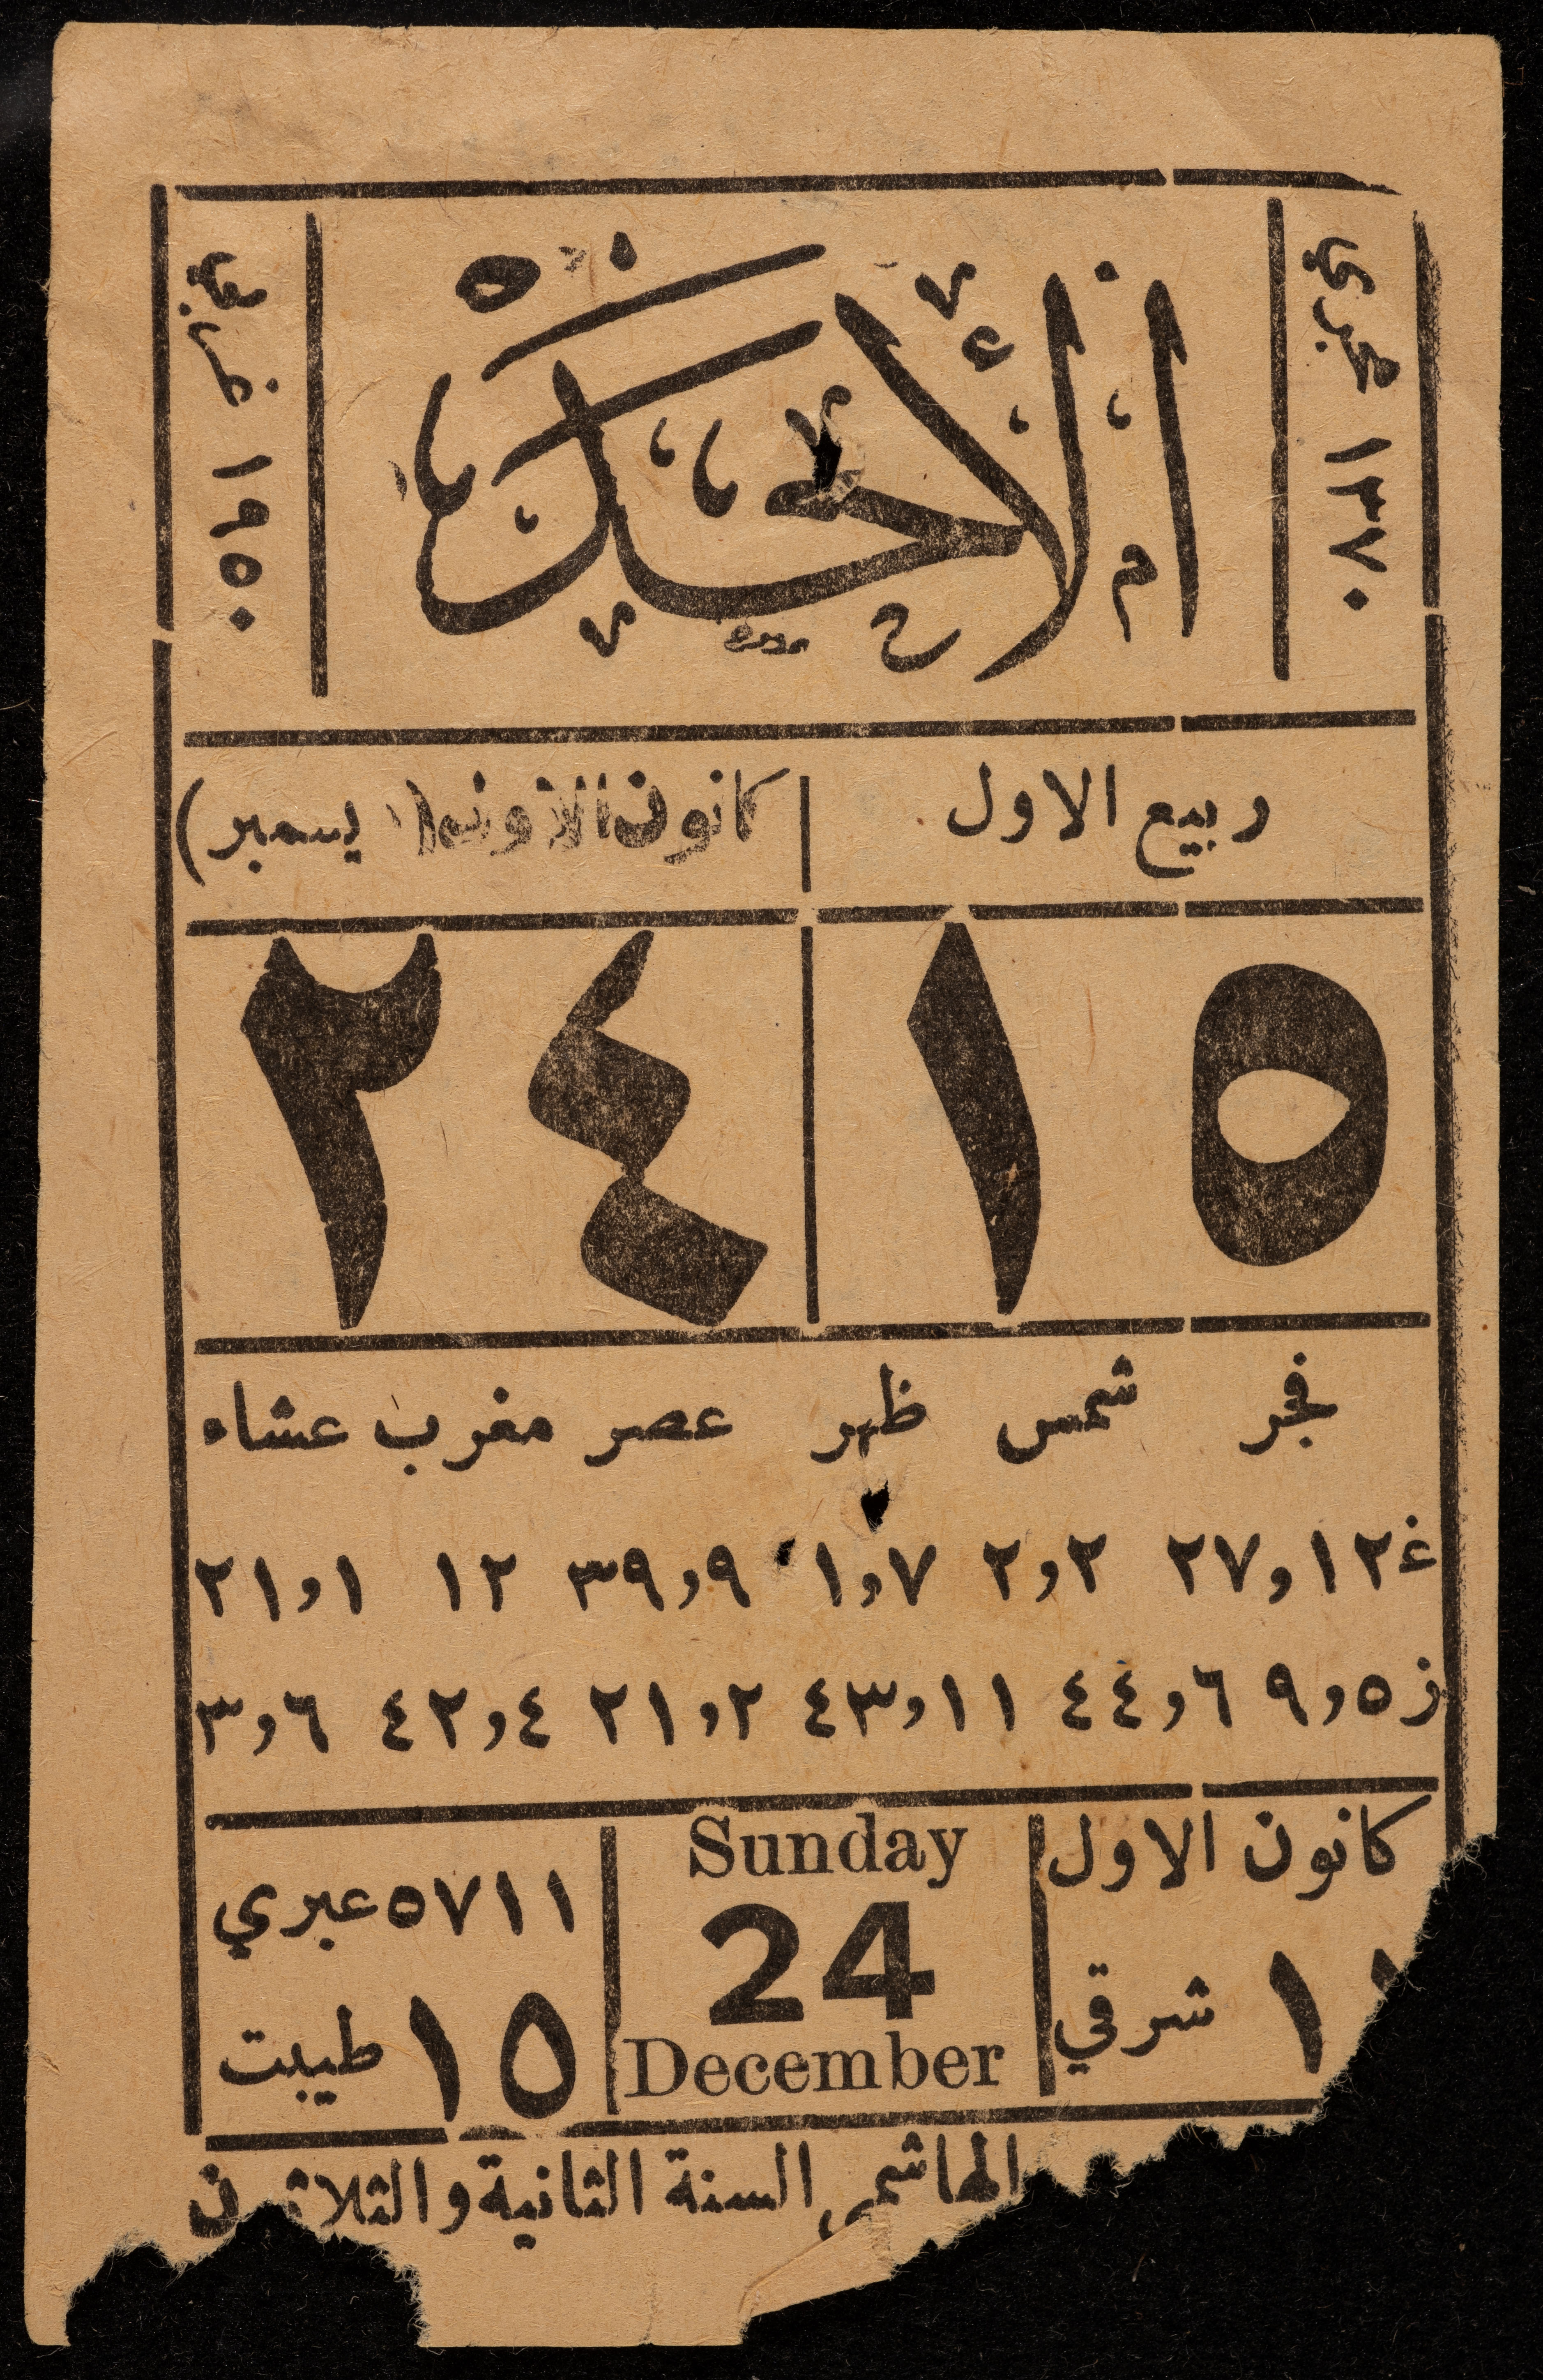 ١٣٧٠ هجري
الأحد
١٩٥٠ غربي
ربيع الاول
كانون الاول (ديسمبر)
١٥
٢٤
فجر شمس ظهر عصر مغرب عشاء
غ ١٢و٢٧ ٢و٢ ٧و١ ٩و٣٩ ١٢ ١و٢١
ز ٥و٩ ٦و٤٤ ١١و٤٣ ٢و٢١ ٤و٤٢ ٦و٣
كانون الاول
شرقي
Sunday
24
December
٥٧١١ عبري
١٥ طيبت
الهاشمي السنة الثانية والثلاثون